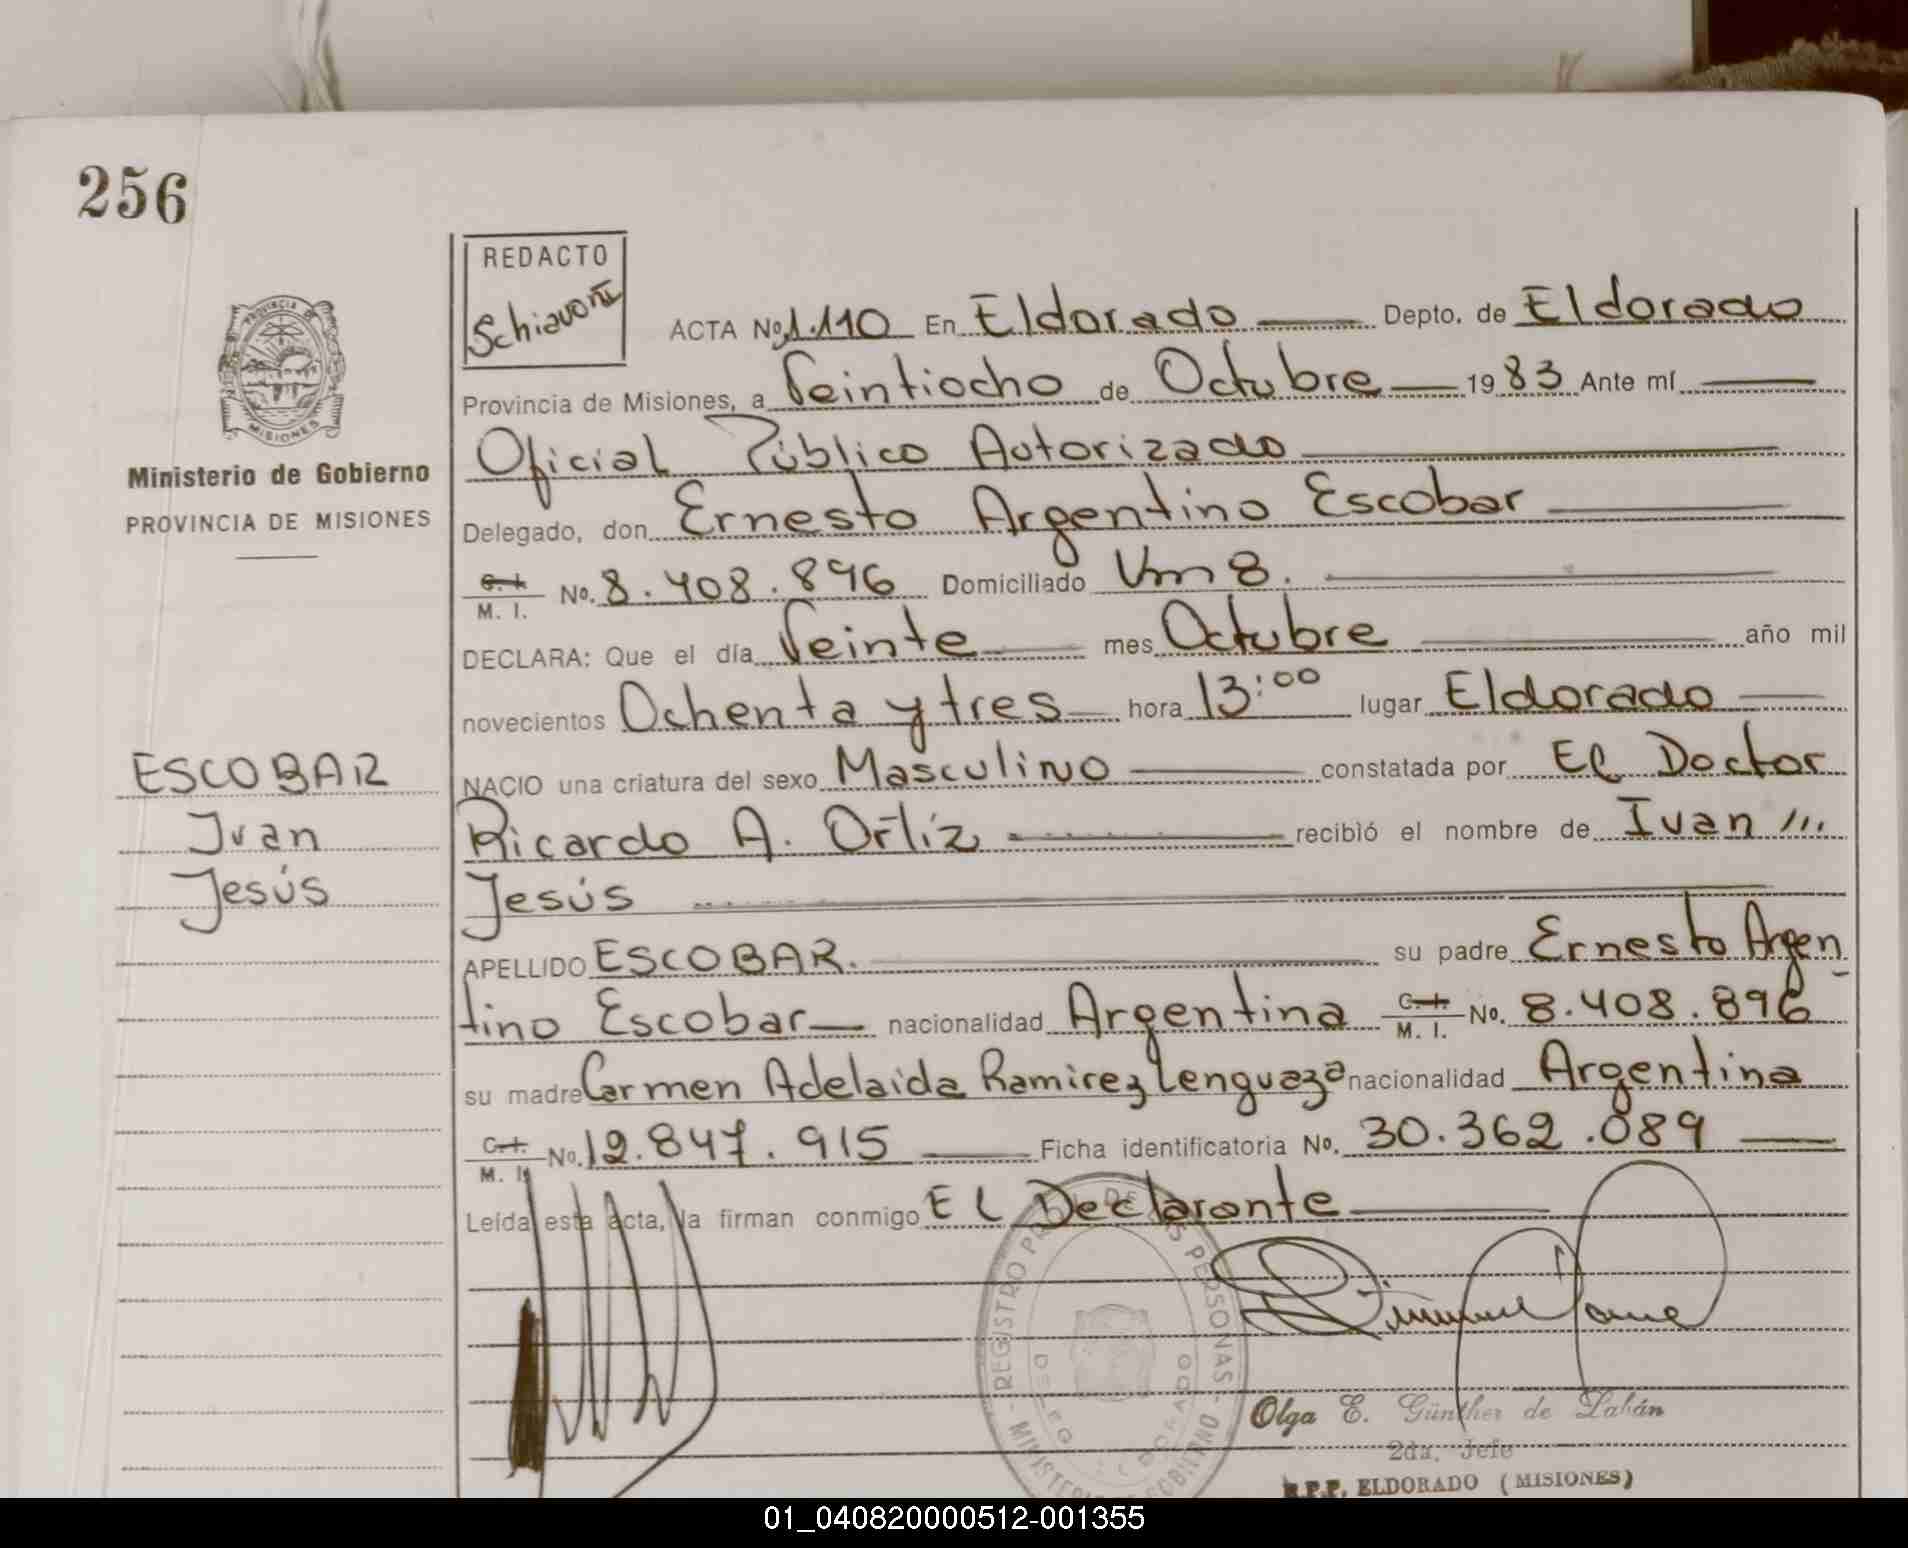 256
REDACTO
Schiavoni
ACTA No. 1.110 En Eldorado Depto. de Eldorado
Provincia de Misiones, a Veintiocho de Octubre 1983 Ante mí
Oficial Público Autorizado
Delegado, don Ernesto Argentino Escobar
C. I. M. I. No. 8.408.896 Domiciliado Km 8.
DECLARA: Que el día Veinte mes Octubre año mil
novecientos Ochenta y tres hora 13:00 lugar Eldorado
NACIO una criatura del sexo Masculino constatada por El Doctor
Ricardo A. Ortíz recibió el nombre de Ivan
Jesús
APELLIDO ESCOBAR. su padre Ernesto Argen
tino Escobar nacionalidad Argentina C. I. M. I. No. 8.408.896
su madre Carmen Adelaida Ramirez Lenguaza nacionalidad Argentina
C. I. M. I. No. 12.847.915 Ficha identificatoria No. 30.362.089
Leída esta acta, la firman conmigo El Declarante
PROVINCIA DE
MISIONES
Ministerio de Gobierno
PROVINCIA DE MISIONES
ESCOBAR
Ivan
Jesús
REGISTRO DE PERSONAS - MINISTERIO GOBIERNO
Olga E. Günther de Labán
2da. Jefe
R.P.P. ELDORADO (MISIONES)
01_040820000512-001355